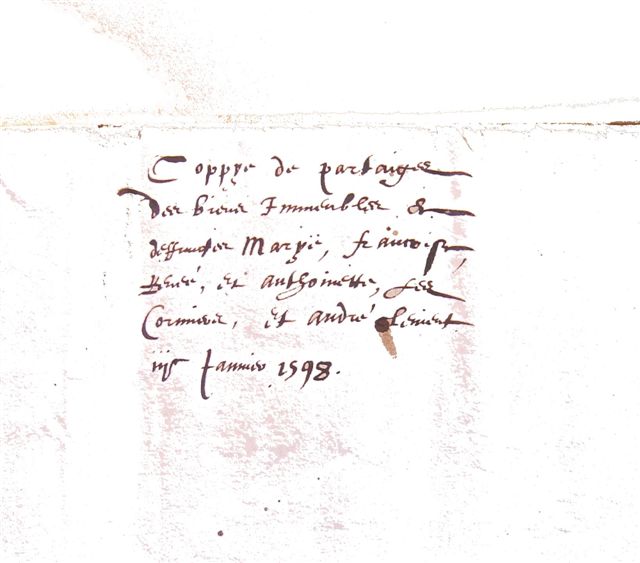 Coppye de partaiges
des biens Immeubles de
deffunctes Maryë, françoise,
Renée, et anthoinette, Les
Cormiers, et andré Clement
iijᵉ Janvier 1598.